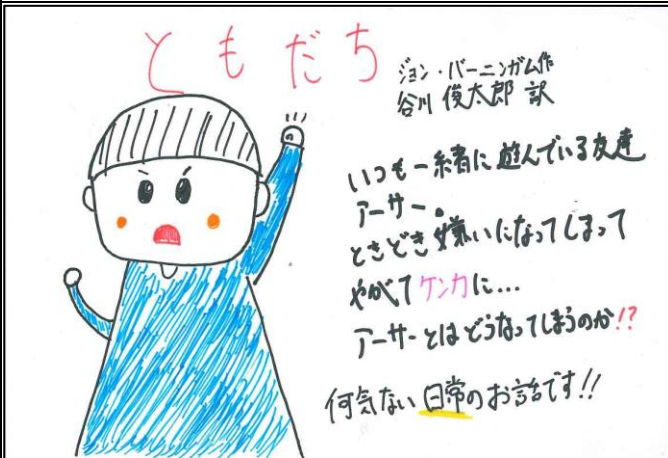 ともだち
ジョン・バーニンガム作
谷川 俊太郎 訳
いつも一緒に遊んでいる友達
アーサー。
ときどき嫌いになってしまって
やがてケンカに…
アーサーとはどうなってしまうのか!?
何気ない日常のお話です!!